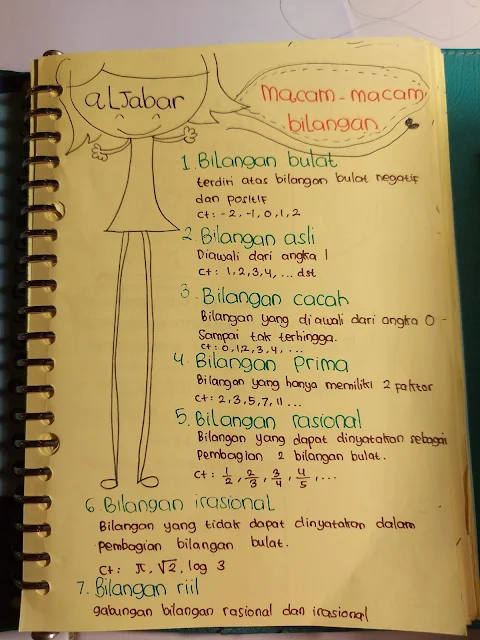 aLJabar
Macam-macam
bilangan
1. Bilangan bulat
terdiri atas bilangan bulat negatif
dan positif
ct: -2, -1, 0, 1, 2
2. Bilangan asli
Diawali dari angka 1
ct: 1, 2, 3, 4, ... dst
3. Bilangan cacah
Bilangan yang diawali dari angka 0 -
Sampai tak terhingga.
ct: 0, 1, 2, 3, 4, ...
4. Bilangan Prima
Bilangan yang hanya memiliki 2 faktor
ct: 2, 3, 5, 7, 11 ...
5. Bilangan rasional
Bilangan yang dapat dinyatakan sebagai
Pembagian 2 bilangan bulat.
ct: 1/2, 2/3, 3/4, 4/5, ...
6. Bilangan irasional
Bilangan yang tidak dapat dinyatakan dalam
Pembagian bilangan bulat.
ct: π, √2, log 3
7. Bilangan riil
gabungan bilangan rasional dan irasional